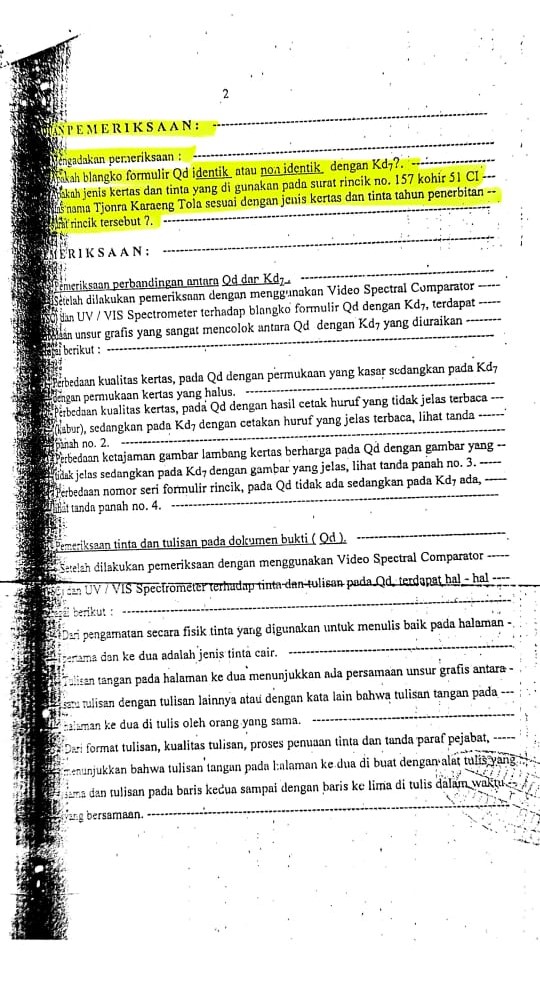 2
PEMERIKSAAN :
Mengadakan pemeriksaan :
Apakah blangko formulir Qd identik atau non identik dengan Kd7?.
jenis kertas dan tinta yang di gunakan pada surat rincik no. 157 kohir 51 CI
nama Tjonra Karaeng Tola sesuai dengan jenis kertas dan tinta tahun penerbitan
rincik tersebut ?.
PEMERIKSAAN :
Pemeriksaan perbandingan antara Qd dan Kd7.
Setelah dilakukan pemeriksaan dengan menggunakan Video Spectral Comparator
dan UV / VIS Spectrometer terhadap blangko formulir Qd dengan Kd7, terdapat
unsur grafis yang sangat mencolok antara Qd dengan Kd7 yang diuraikan
berikut :
Perbedaan kualitas kertas, pada Qd dengan permukaan yang kasar sedangkan pada Kd7
dengan permukaan kertas yang halus.
Perbedaan kualitas kertas, pada Qd dengan hasil cetak huruf yang tidak jelas terbaca
(kabur), sedangkan pada Kd7 dengan cetakan huruf yang jelas terbaca, lihat tanda
panah no. 2.
Perbedaan ketajaman gambar lambang kertas berharga pada Qd dengan gambar yang
tidak jelas sedangkan pada Kd7 dengan gambar yang jelas, lihat tanda panah no. 3.
Perbedaan nomor seri formulir rincik, pada Qd tidak ada sedangkan pada Kd7 ada,
lihat tanda panah no. 4.
Pemeriksaan tinta dan tulisan pada dokumen bukti ( Qd ).
Setelah dilakukan pemeriksaan dengan menggunakan Video Spectral Comparator
dan UV / VIS Spectrometer terhadap tinta dan tulisan pada Qd, terdapat hal - hal
berikut :
Dari pengamatan secara fisik tinta yang digunakan untuk menulis baik pada halaman
pertama dan ke dua adalah jenis tinta cair.
Tulisan tangan pada halaman ke dua menunjukkan ada persamaan unsur grafis antara
satu tulisan dengan tulisan lainnya atau dengan kata lain bahwa tulisan tangan pada
halaman ke dua di tulis oleh orang yang sama.
Dari format tulisan, kualitas tulisan, proses penuaan tinta dan tanda paraf pejabat,
menunjukkan bahwa tulisan tangan pada halaman ke dua di buat dengan alat tulis yang
sama dan tulisan pada baris kedua sampai dengan baris ke lima di tulis dalam waktu
yang bersamaan.